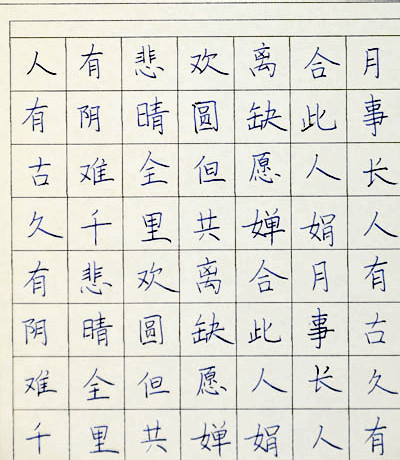 人有悲欢离合月
有阴晴圆缺此事
古难全但愿人长
久千里共婵娟人
有悲欢离合月有
阴晴圆缺此事古
难全但愿人长久
千里共婵娟人有